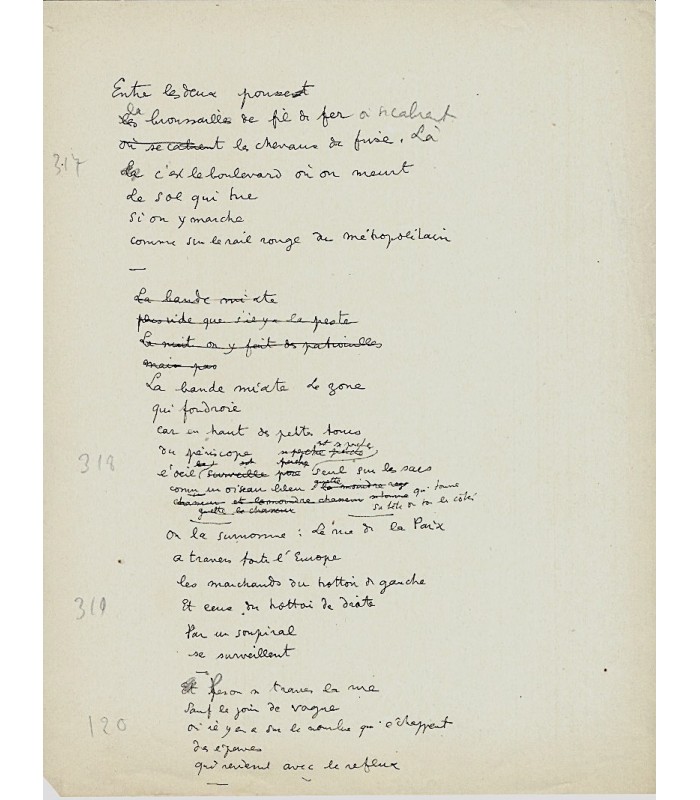 Entre les deux poussent
la
les broussailles de fil de fer où se cabrent
où se cabrent les chevaux de frise. Là
317
Là c'est le boulevard où on meurt
Le sol qui tue
si on y marche
comme sur le rail rouge du métropolitain
—
La bande mixte
plus vide que s'il y a la peste
La nuit on y fait des patrouilles
mais pas
La bande mixte La zone
qui foudroie
car en haut des petites tours
du périscope se perche
318
l'oeil surveille seul sur les sacs
comme un oiseau bleu guette la moindre
chasseur et la moindre chasseur qui tourne
guette le chasseur sa tête de tous les côtés
On la surnomme : La rue de la Paix
a travers toute l'Europe
les marchands du trottoir de gauche
319
Et ceux du trottoir de droite
Par un soupirail
se surveillent
—
Et Person ne traverse la rue
120
sauf le jour de vague
où il y en a sur le nombre qui échappent
des épaves
qui revienent avec le reflux
—